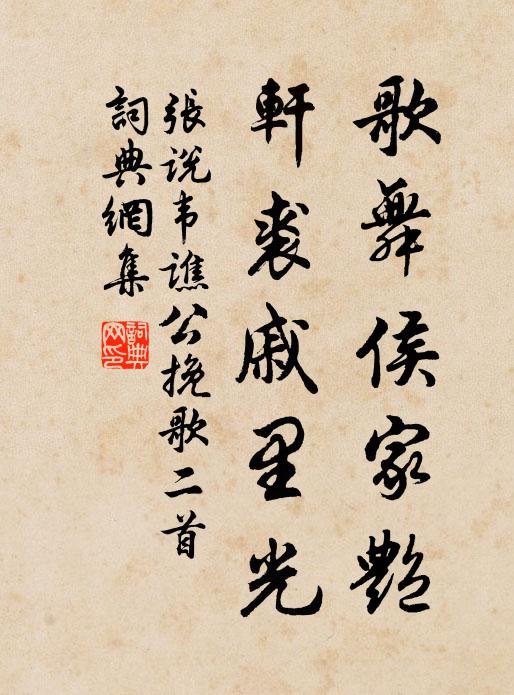 歌舞侯家艷
軒裘戚里光
張说韦譙公挽歌二首
詞典網集
詞典
网印